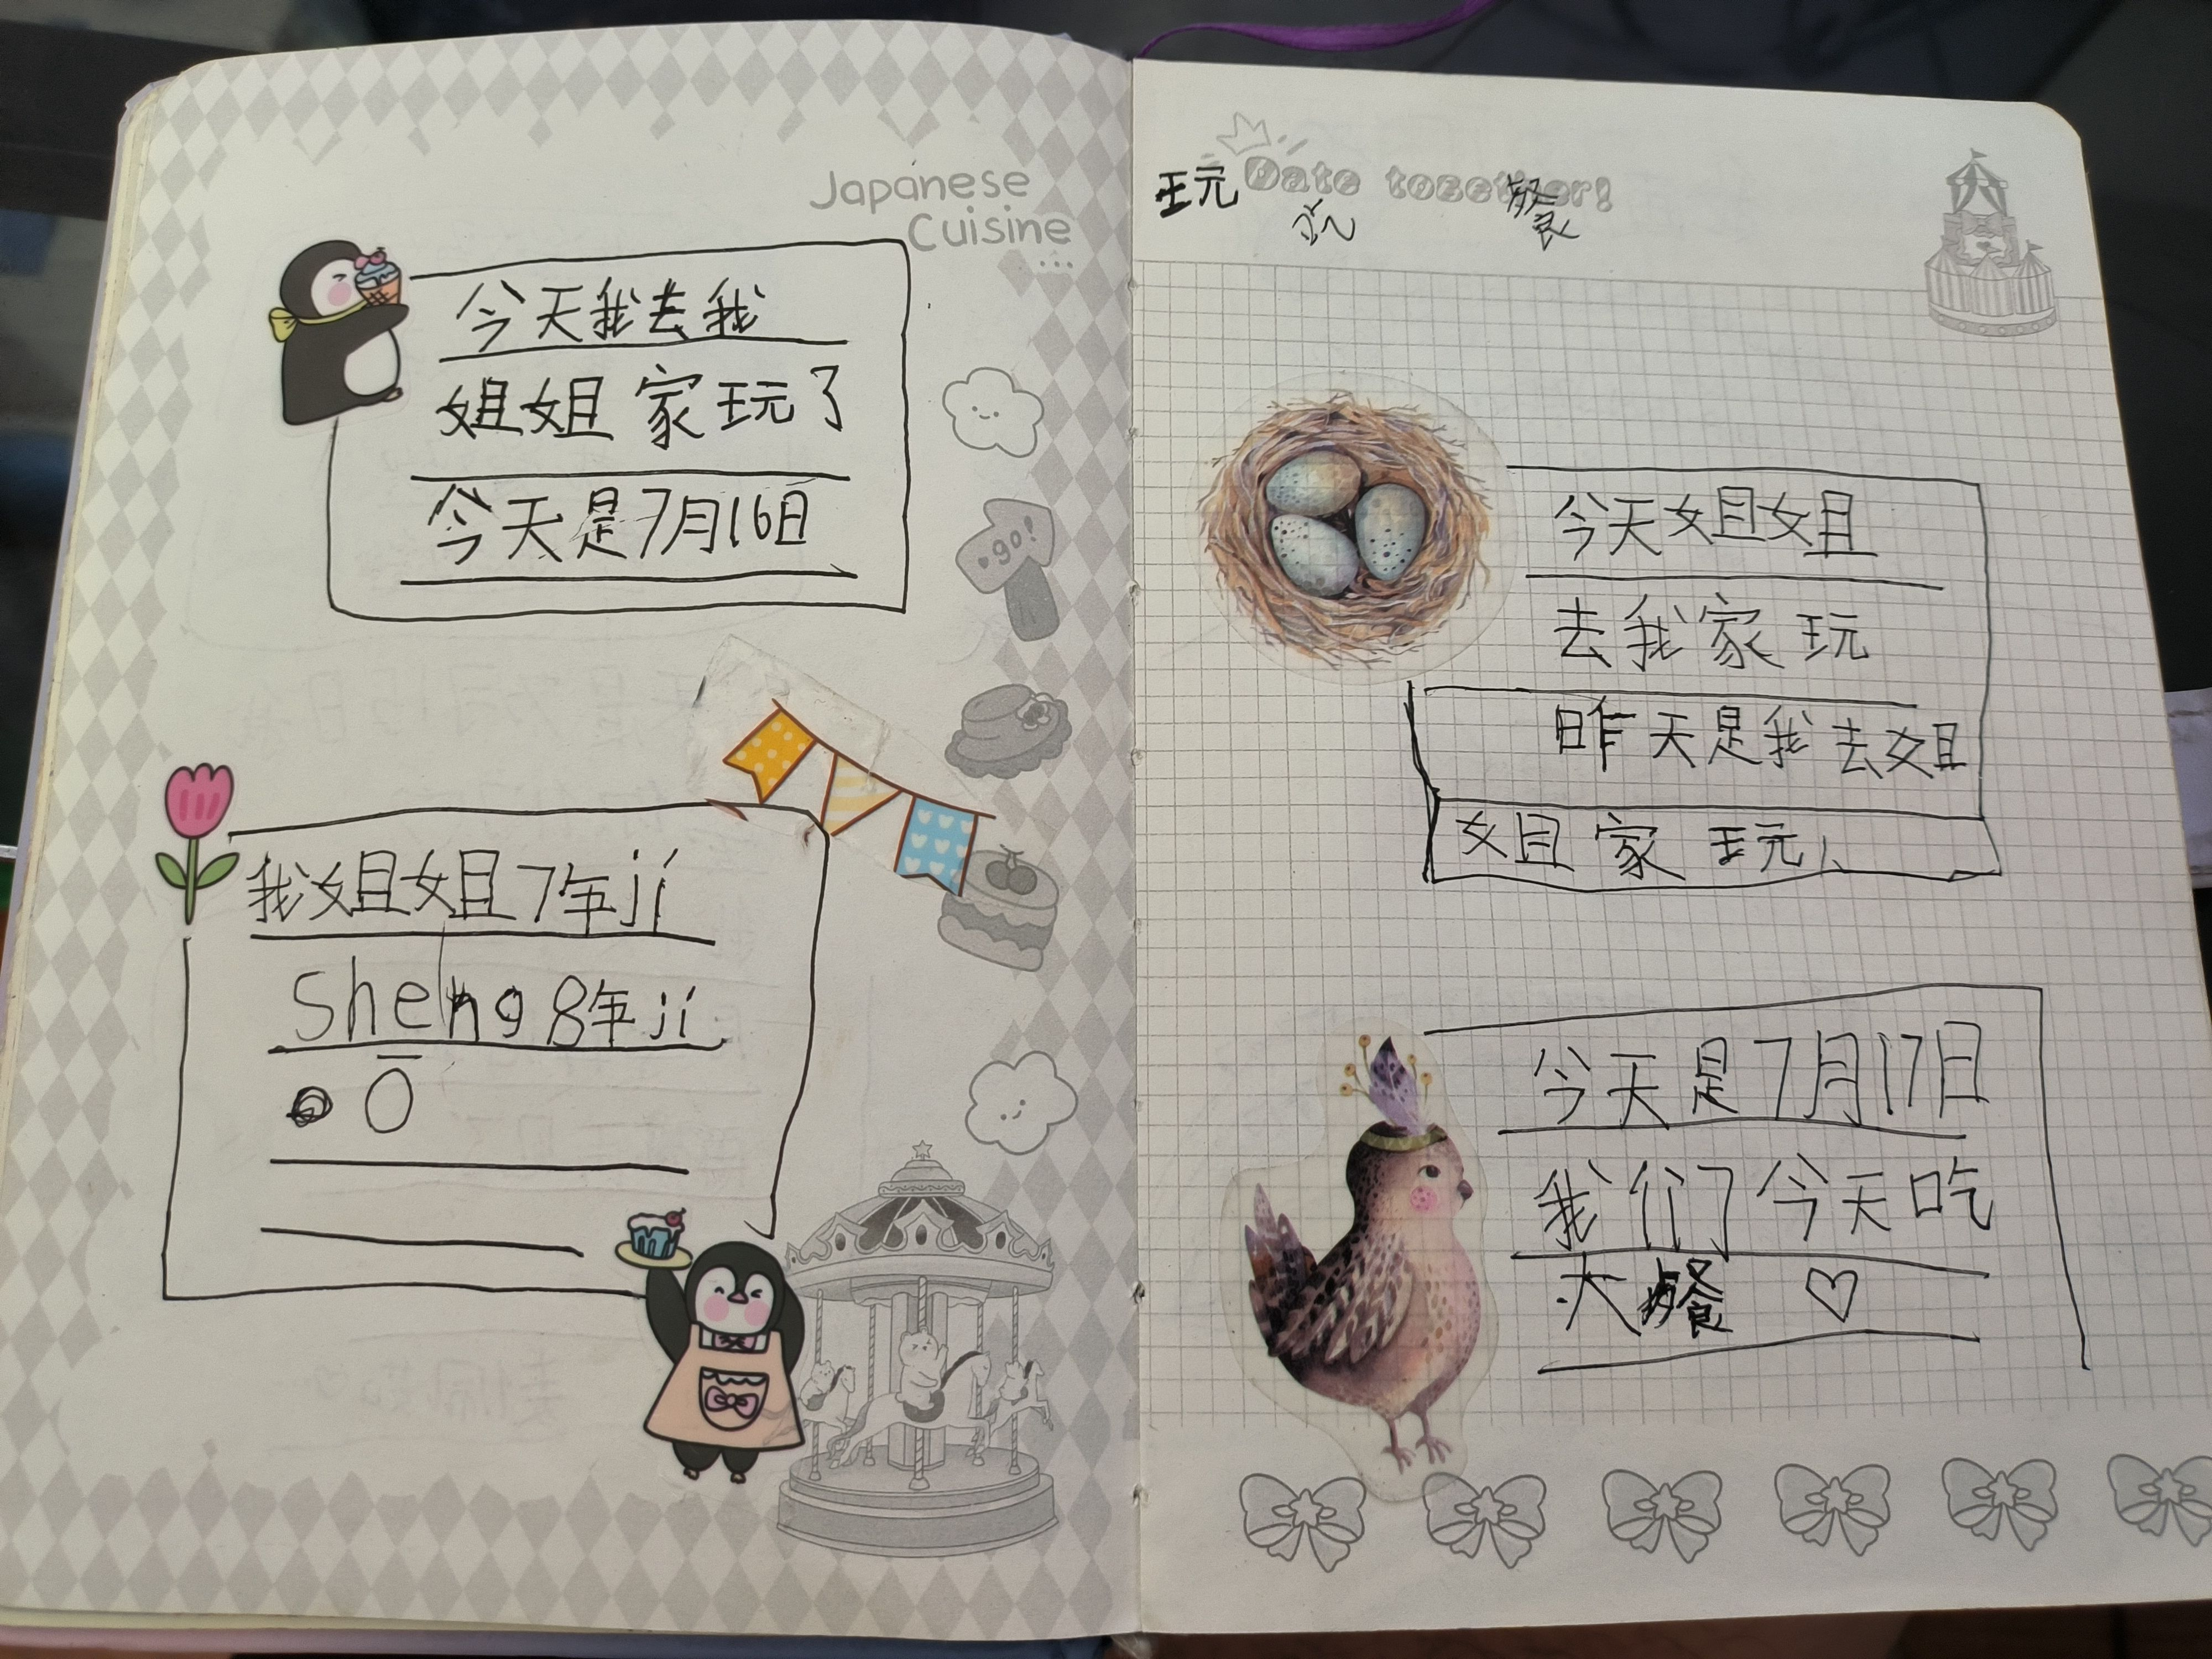 Japanese
Cuisine
...
今天我去我
姐姐家玩了
今天是7月16日
go!
我姐姐7年jí
Sheng 8年jí
ō
玩 Date together!
吃 餐
今天姐姐
去我家玩
昨天是我去姐
姐家玩
今天是7月17日
我们今天吃
大餐 ♡